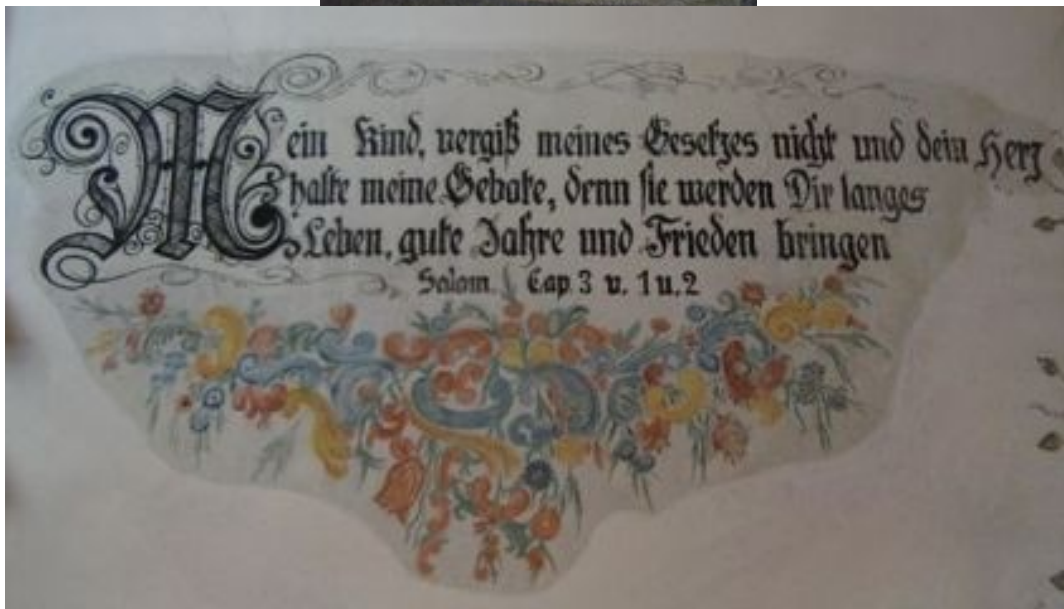 Mein Kind, vergiß meines Gesetzes nicht und dein Herz
halte meine Gebote, denn sie werden Dir langes
Leben, gute Jahre und Frieden bringen
Salom. Cap 3 v. 1 u. 2